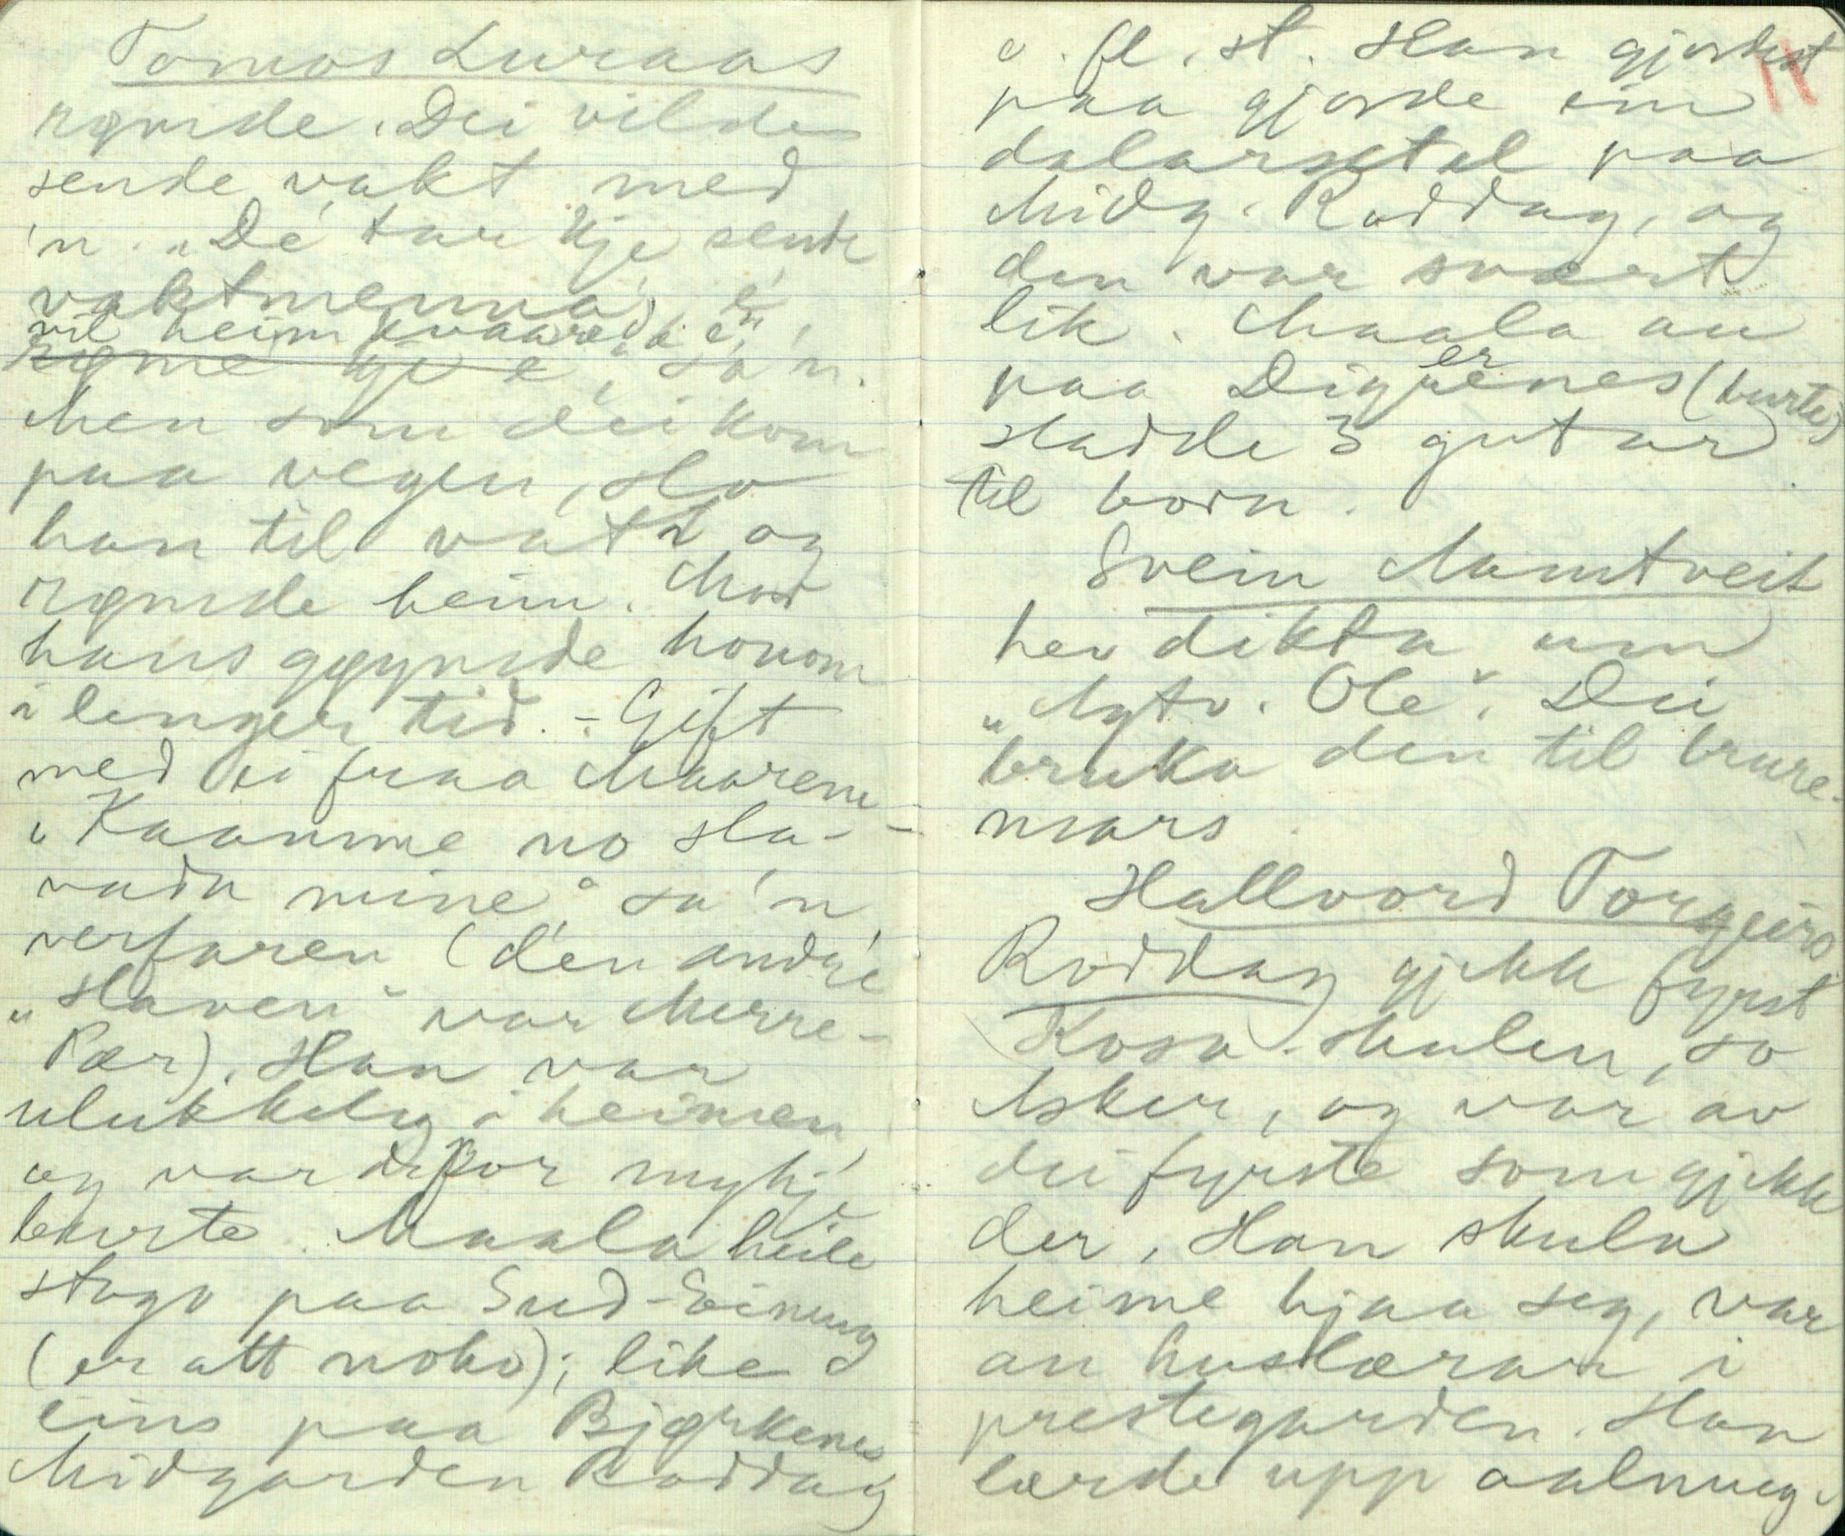 Tomas Luraas
rømde. Dei vilde
sende vakt med
'n. "De tar kje sende
vaktmenna, e
vil heim kvaare d'e",
rømé kje e, sa'n.
Men som dei kom
paa vegen, slo
han til vatn og
rømde heim. Mor
hans gøymde honom
i lenger tid. - Gift
med ei fraa Maarem
"Kaanme no sla-
vadn mine" sa'n
verfaren (den andre
"slaven" var Merre-
Pær). Han var
ulukkeleg i heimen,
og var difor mykje
burte. Maala heile
stogo paa Sud-Einung
(er att noko); like
eins paa Bjørkenes
Midgarden Roddøy
o. fl. st. Han gjorde
paa gjorde ein
dalarsetal paa
Midg. Roddøy, og
den var svært
lik. Maala au
paa Digerenes (burte)
Hadde 3 gutar
til born.
11
Svein Mamtveit
hev dikta um
"Myto. Ole". Dei
bruka den til brure-
mars.
Hallvord Torgeirs.
Roddøy gjekk fyrst
Kosa-skulen, so
Asker, og var av
dei fyrste som gjekk
der. Han skula
heime hjaa seg, var
au huslærar i
prestegarden. Han
lærde upp aalmug-